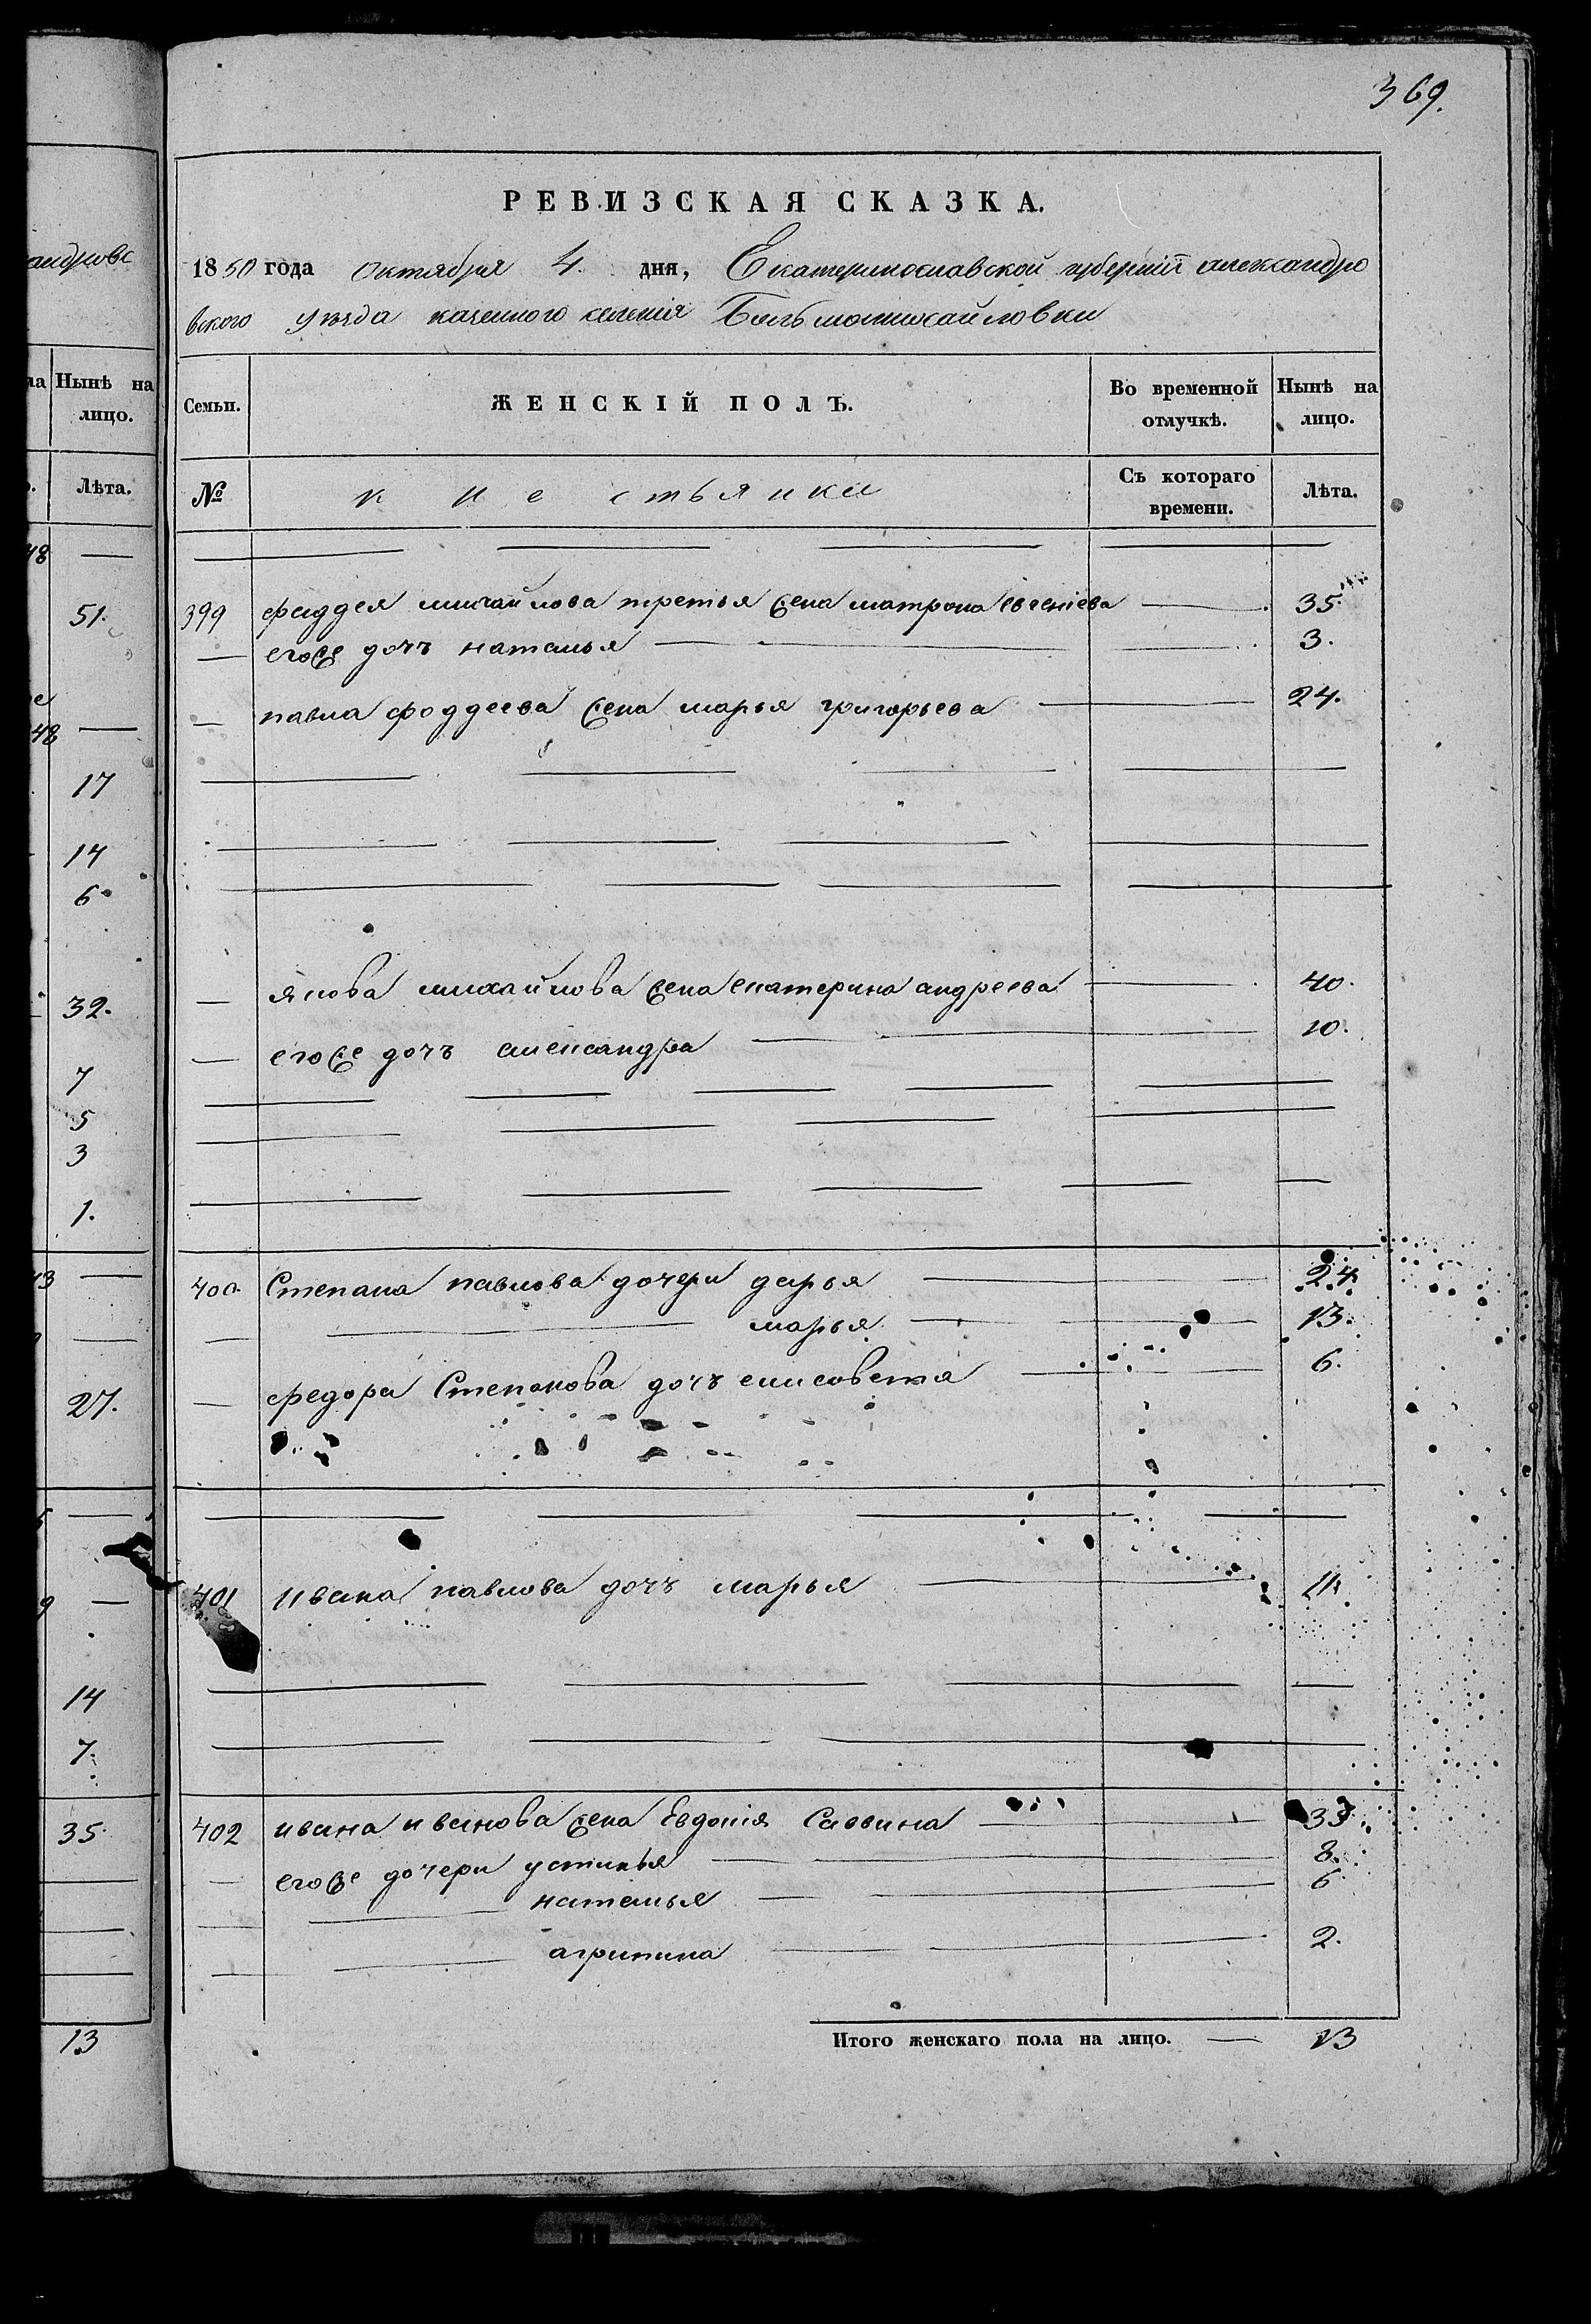 369.
андровс
РЕВИЗСКАЯ СКАЗКА.
1850 года октября 4. дня, Екатеринославской губерніи александро
вского уезда казенного селенія Большомихайловки
ла Нынѣ на лицо.
Лѣта.
48 —
51.
е
48 —
17
14
6
32.
7
5
3
1.
13 —
27.
5 —
9 —
14
7.
35
13
Семьи. ЖЕНСКІЙ ПОЛЪ. Во временной отлучкѣ. Нынѣ на лицо.
№ крестьянки Съ котораго времени. Лѣта.
399 фаддея михайлова третья жена матрона евгеніева — 35.
— егоже дочъ наталья — 3.
— павла фаддеева жена марья григорьева — 24.
— якова михайлова жена екатерина андреева — 40.
— егоже дочъ александра — 10.
400 Степана павлова дочери дарья — 24.
— марья — 13.
— федора Степанова дочъ елисовета — 6.
401 ивана павлова дочъ марья — 11.
402 ивана иванова жена Евдокія Саввина — 33.
— егоже дочери устинья — 8.
— наталья — 6.
— агрипина — 2.
Итого женскаго пола на лицо. — 13